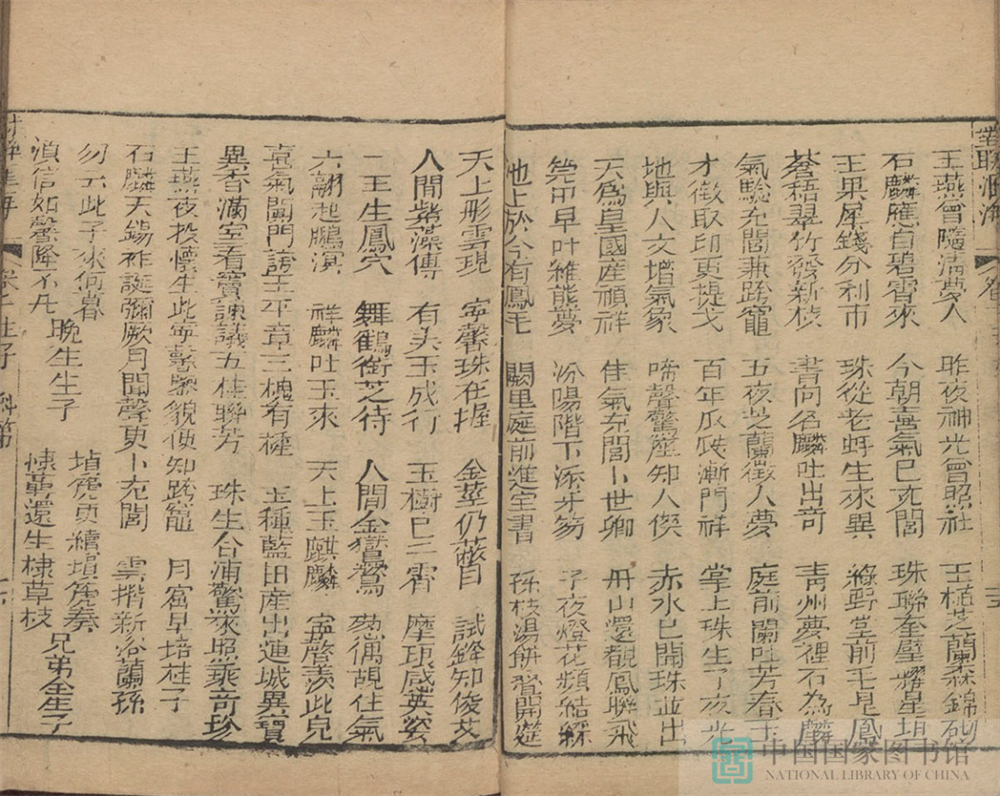 玉燕曾隨清夢人　昨夜神光曾昭社　玉植芝蘭森錦砌
石麟應自碧霄來　今朝喜氣已充閭　珠聯奎璧耀星垣
王果犀錢分利市　珠從老蚌生來異　綠野堂前毛是鳳
蒼梧翠竹發新枝　書向名麟吐出奇　青州夢裡石為麟
氣驗充閭兼跨竈　五夜芝蘭徵人夢　庭前蘭吐芳春玉
才徵取印更提戈　百年瓜瓞漸門祥　掌上珠生子夜光
地與人文增氣象　啼聲驚座知人傑　赤水已開珠並出
天為皇國產禎祥　佳氣充閭卜世卿　丹山還觀鳳聯飛
筦中早叶維熊夢　汾陽階下添牙笏　子夜燈花頻結綵
池上於今有鳳毛　闕里庭前進玉書　孫枝湯餅聳開筵
天上形雲現　寧馨珠在握　金莖仍蓄　試鋒知俊艾
人間紫藻傳　有美玉成行　玉樹已三霄　摩琅感英姿
一玉生鳳穴　舞鶴銜芝待　人間金鸑鷟　勃偶覘佳氣
六翮起鵬溟　祥麟吐玉來　天上玉麒麟　寧聲羨此兒
喜氣闌門誇王平章三槐有種　玉種藍田產出連城異寶
異香滿室看竇諫議五桂聯芳　珠生合浦驚來照乘奇珍
玉燕夜投懷生此寧馨驗貌便知跨竈　月窟早培桂子
石麟天錫祚誕彌厥月聞聲更卜充閭　雲揩新浴蘭孫
勿云此子來何暮　晚生生子　塤箎更續塤箎奏　兄弟金生子
須信如馨降不凡　棣萼還生棣草枝